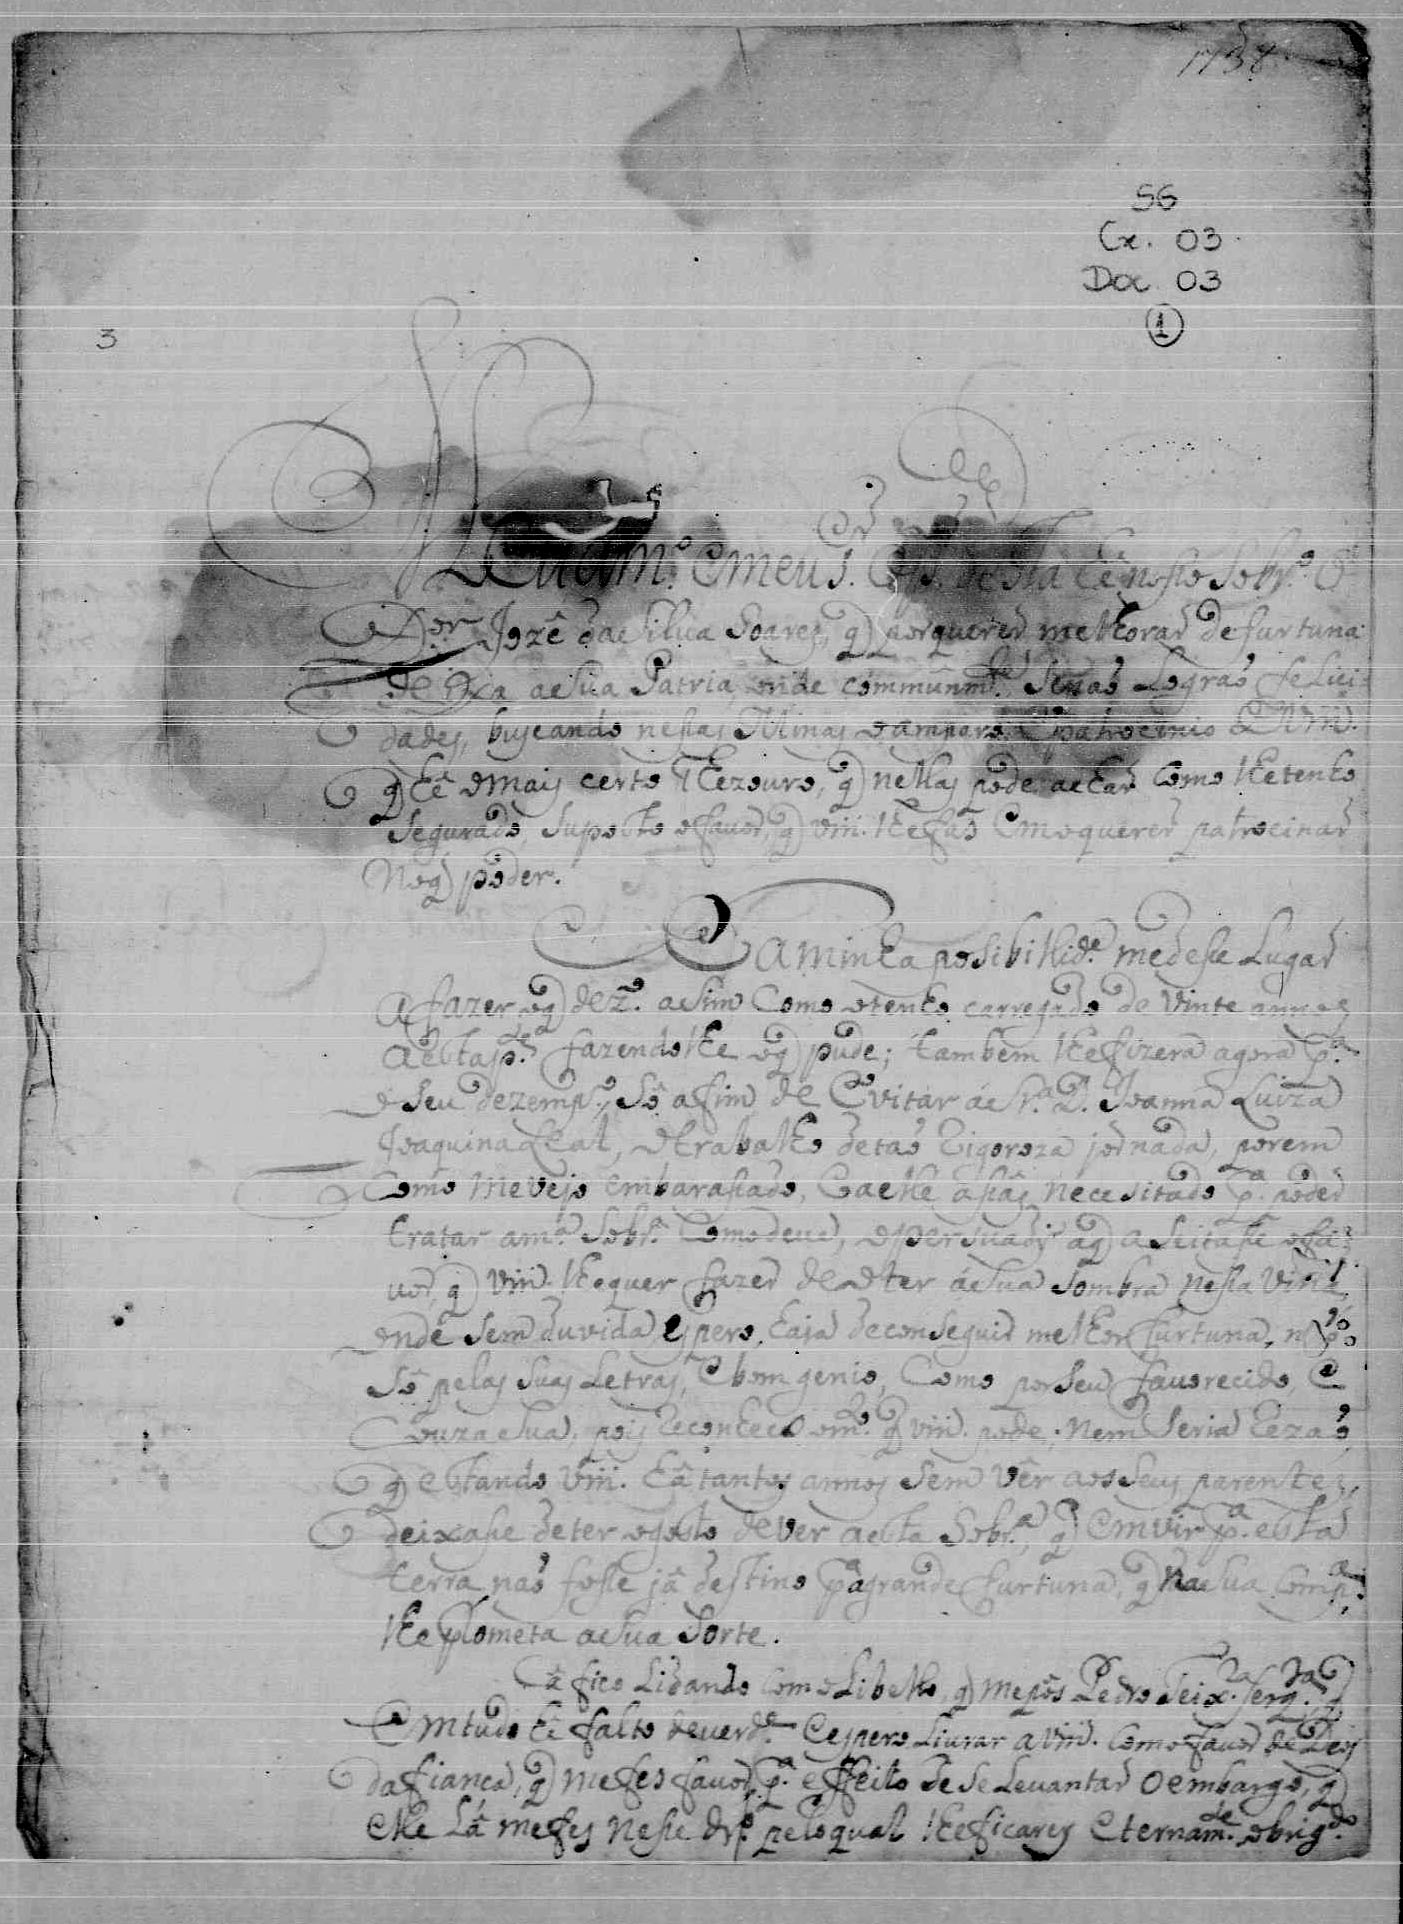 1738
SG
Cx. 03
Doc 03
1
3
Meu am.º e meu S. desta he nosso Sobr.º O
D.or Jozê da Silva Soares, q por querer melhorar de furtuna
deixa a sua Patria, onde commûnm.te se naõ Lograõ felici
dades, buscando nestas Minas o amparo, e patrocinio de Vm.
q hê o mais certo thezouro, q nellas pode achar como lhe tenho
segurado, suposto o favor, q vm. lhe fas em o querer patrocinar
No q poder.
Se a minha posibillid.e me dese Lugar
a fazer o q dez.º asim como o tenho carregado de vinte annos
a esta p.te fazendolhe o q pude; tambem lhe fizera agora p.a
o seu dezemp.º, sô a fim de evitar á S.ra D. Joanna Luiza
Joaquina Leal, o trabalho de taõ rigoroza jornada, porem
como me vejo embarasado, e a elle asás necesitado p.a poder
tratar a m.ª Sobr.ª como deve, o persuady a q aseitase o fa
vor, q vm. lhe quer fazer de o ter á sua sombra nesta Villa,
onde sem duvida espero, haja de conseguir melhor furtuna, naõ
sô pelas suas Letras, e bom genio, como por seu favorecido, e
couza sua, pois reconheco o m.to q vm. pode; nem seria rezaõ,
q estando vm. hâ tantos annos sem vêr aos seus parentes,
deixase de ter o gosto de ver a esta Sobr.ª, q em vir p.a esta
terra naõ fose jâ destino p.a grande furtuna, q na sua comp.ª
lhe prometa a sua sorte.
Câ fico Lidando com o Libello, q me pôs Pedro Teix.ra Serq.ra q
em tudo hê falto de verd.e e espero Livrar a vm. com o favor de Deos
da fianca, q me fes favor, p.a effeito de se Levantar o embargo, q
elle Lâ me fes nese dr.º pelo qual lhe ficarey eternam.te obrig.do